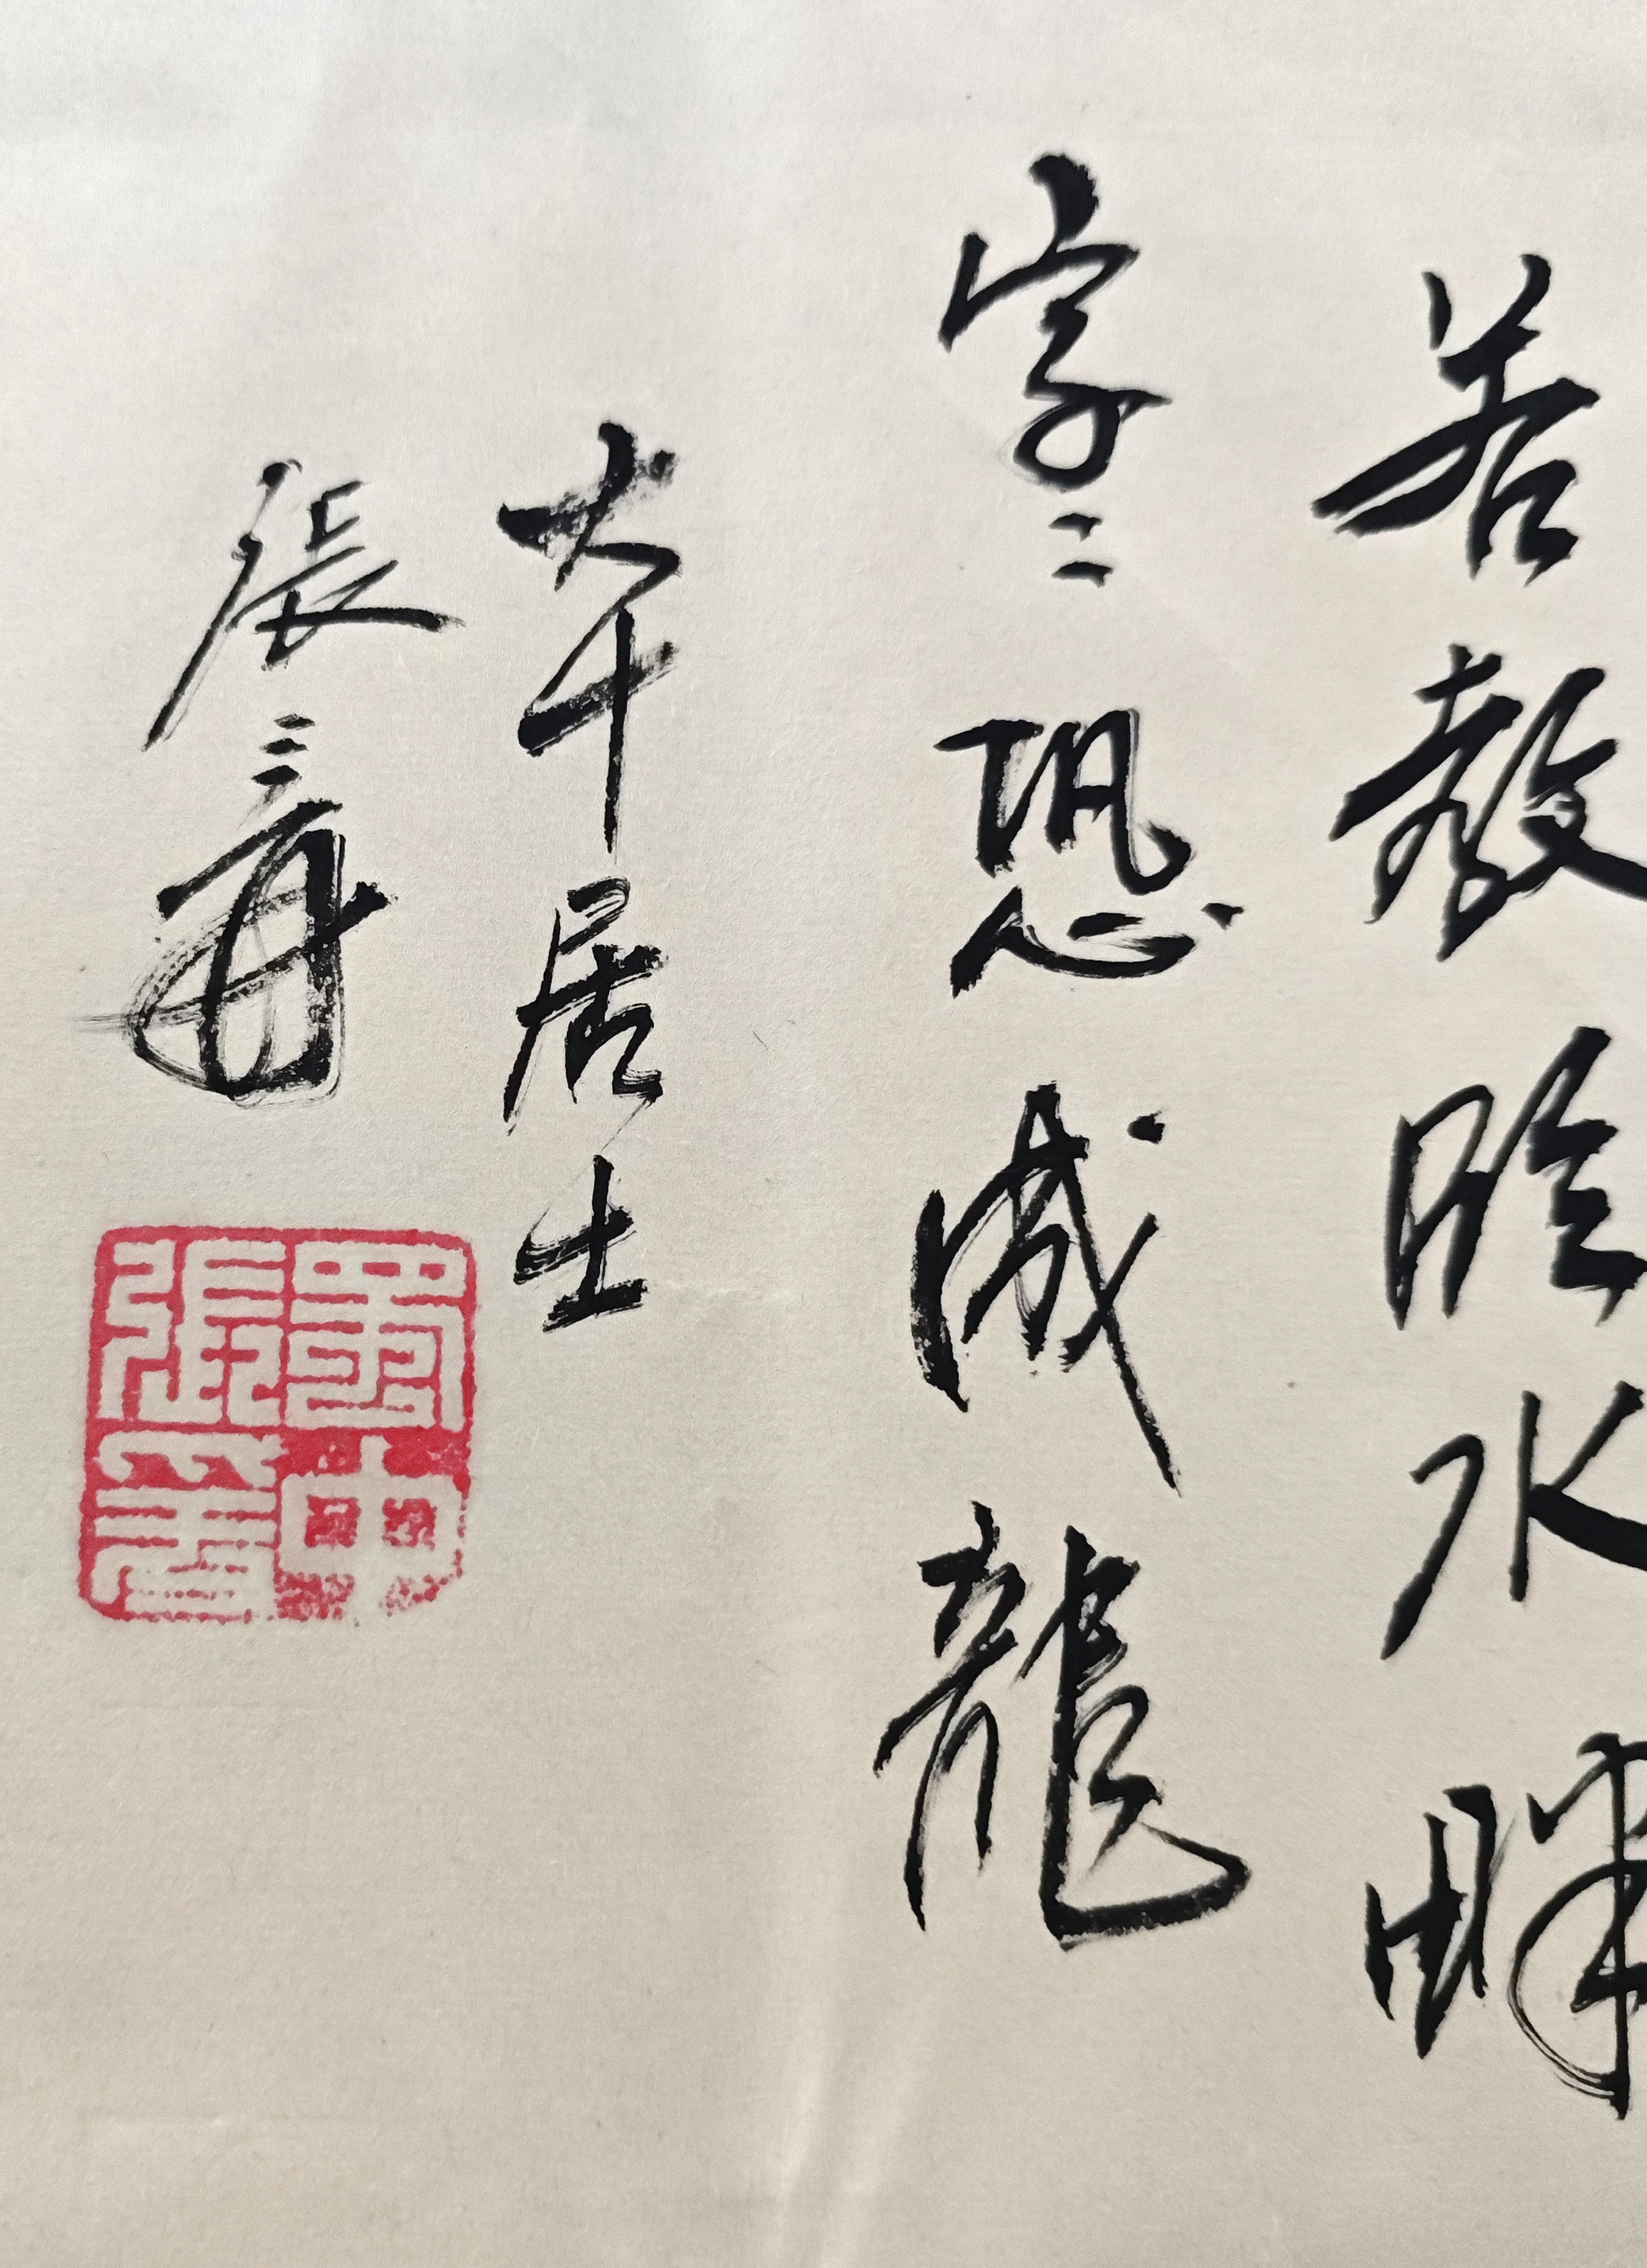 若教臨水畔
字〻恐成龍
大千居士
張爰
蜀中張爰